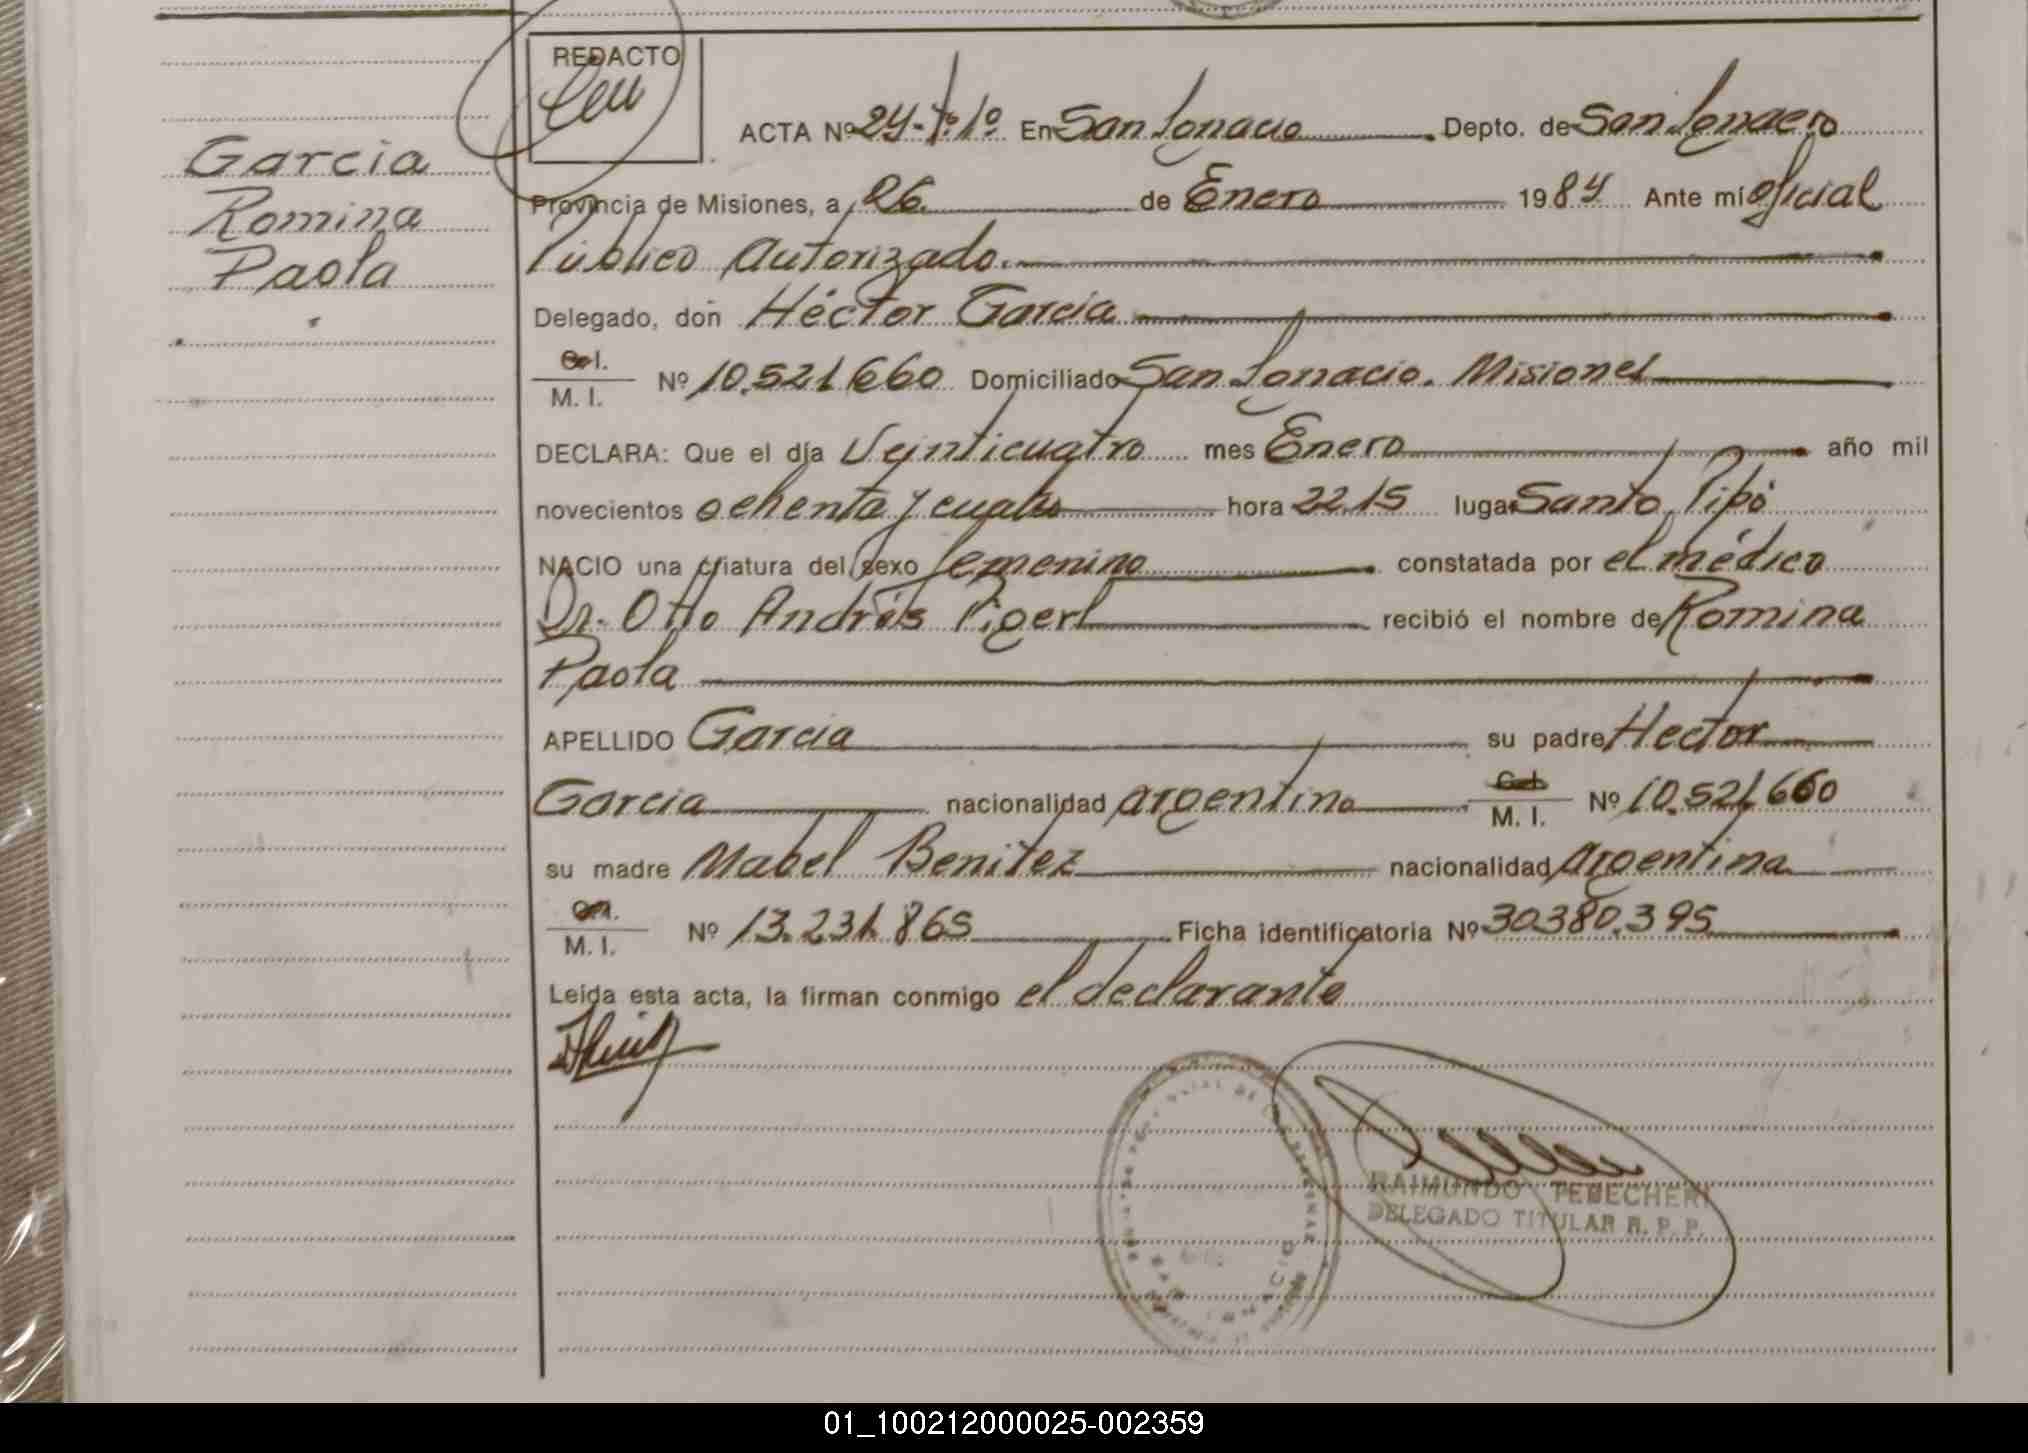 REDACTO
Garcia
Romina
Paola
ACTA Nº 24-Tº1º En San Ignacio Depto. de San Ignacio
Provincia de Misiones, a 26 de Enero 1984 Ante mí oficial
Público Autorizado.
Delegado, don Héctor Garcia
M. I. Nº 10.521.660 Domiciliado San Ignacio. Misiones
DECLARA: Que el día Veinticuatro mes Enero año mil
novecientos ochenta y cuatro hora 22.15 lugar Santo Pipó
NACIO una criatura del sexo femenino constatada por el médico
Dr. Otto Andrés Pigerl recibió el nombre de Romina
Paola
APELLIDO Garcia su padre Hector
Garcia nacionalidad argentina M. I. Nº 10.521.660
su madre Mabel Benitez nacionalidad argentina
M. I. Nº 13.231.865 Ficha identificatoria Nº 30.380.395
Leída esta acta, la firman conmigo el declarante
RAIMUNDO TEBECHERI
DELEGADO TITULAR R. P. P.
01_100212000025-002359